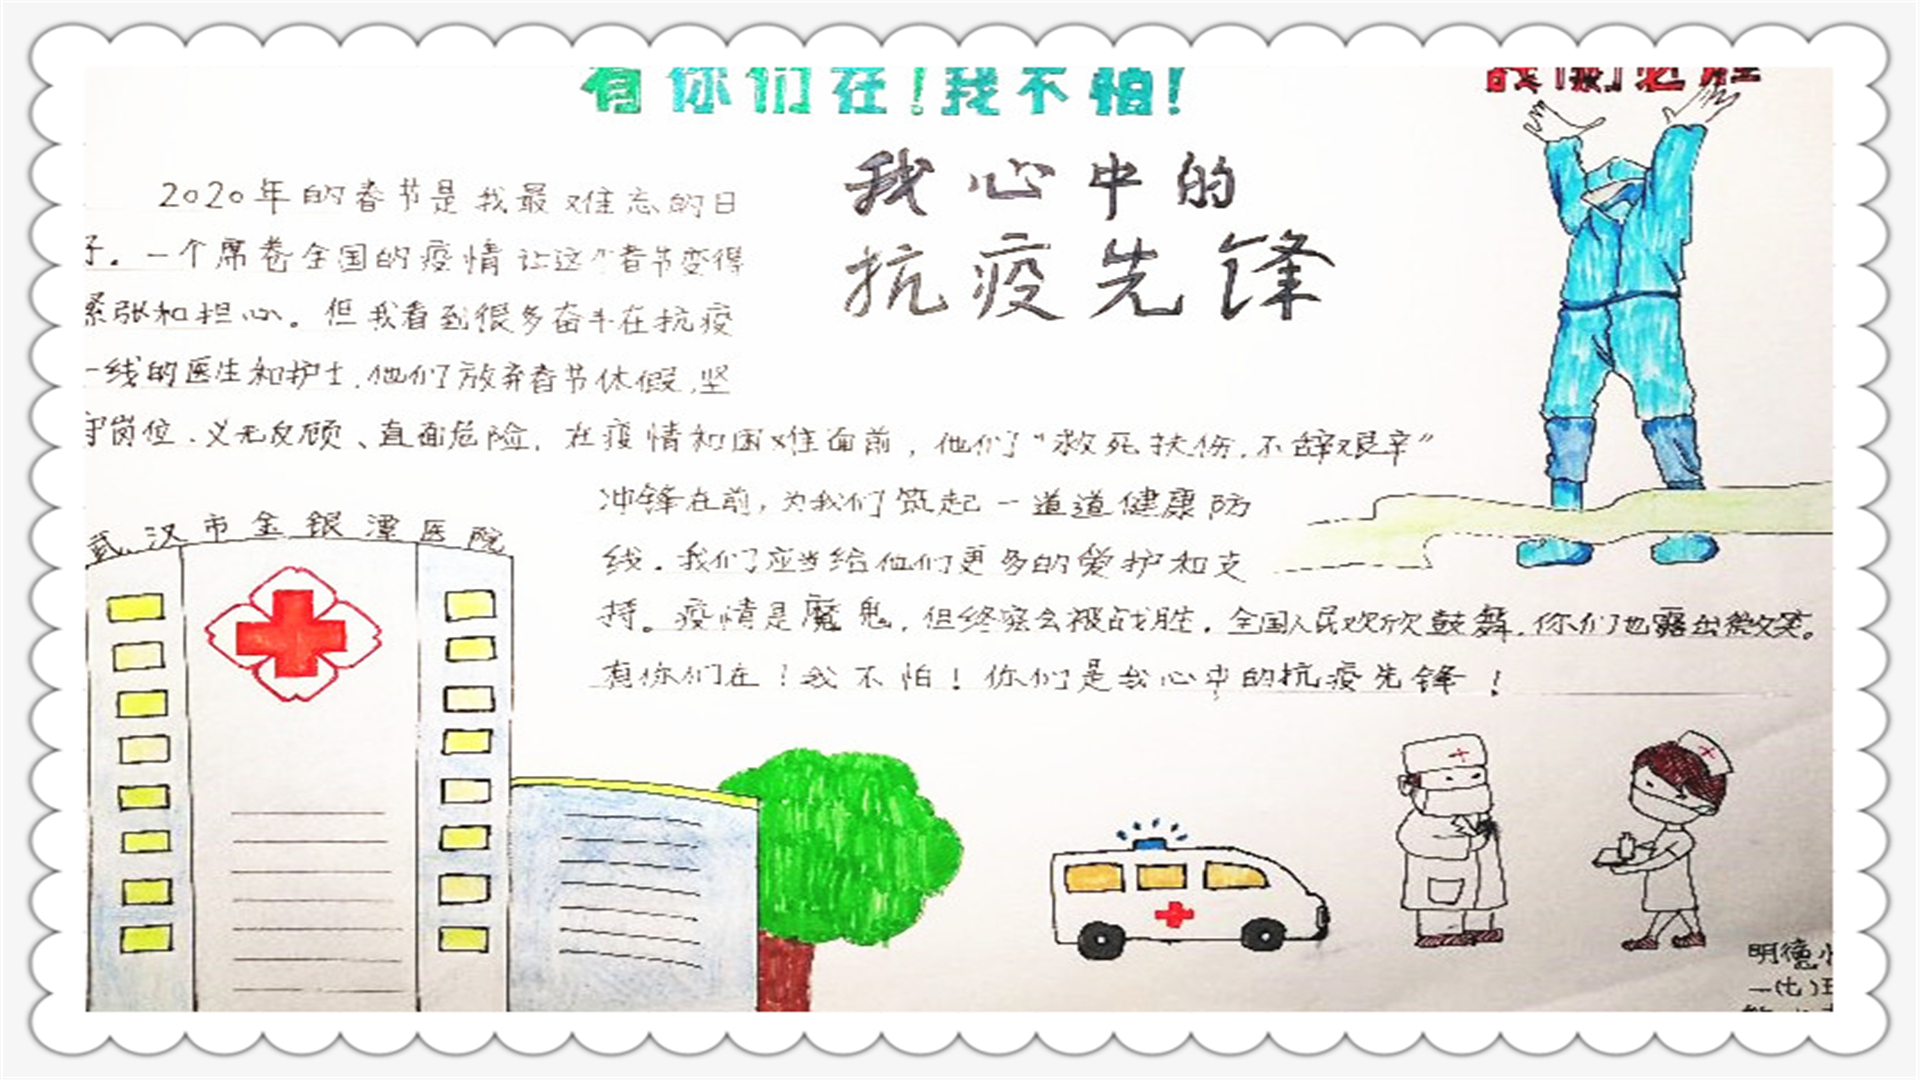 有你们在！我不怕！
战 必胜
我心中的
抗疫先锋
2020年的春节是我最难忘的日
子。一个席卷全国的疫情让这个春节变得
紧张和担心。但我看到很多奋斗在抗疫
一线的医生和护士，他们放弃春节休假，坚
守岗位、义无反顾、直面危险，在疫情和困难面前，他们“救死扶伤，不辞艰辛”
冲锋在前，为我们筑起一道道健康防
线。我们应当给他们更多的爱护和支
持。疫情是魔鬼，但终究会被战胜。全国人民欢欣鼓舞，你们也露出微笑。
有你们在！我不怕！你们是我心中的抗疫先锋！
武汉市金银潭医院
明德小
一（七）班